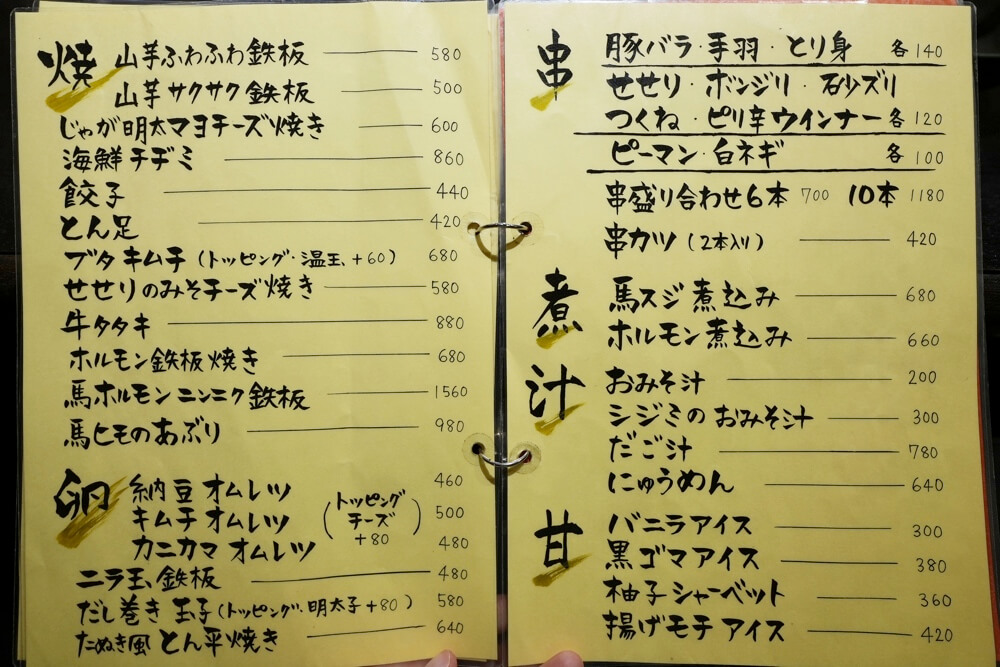 焼
山芋ふわふわ鉄板 580
山芋サクサク鉄板 500
じゃが明太マヨチーズ焼き 600
海鮮チヂミ 860
餃子 440
とん足 420
ブタキムチ(トッピング・温玉+60) 680
せせりのみそチーズ焼き 580
牛タタキ 880
ホルモン鉄板焼き 680
馬ホルモンニンニク鉄板 1560
馬ヒモのあぶり 980
卵
納豆オムレツ 460
キムチオムレツ 500
カニカマオムレツ 480
(トッピング
チーズ
+80)
ニラ玉鉄板 480
だし巻き玉子(トッピング・明太子+80) 580
たぬき風とん平焼き 640
串
豚バラ・手羽・とり身 各140
せせり・ボンジリ・砂ズリ
つくね・ピリ辛ウインナー各120
ピーマン・白ネギ 各100
串盛り合わせ6本 700 10本 1180
串カツ(2本入り) 420
煮
馬スジ煮込み 680
ホルモン煮込み 660
汁
おみそ汁 200
シジミのおみそ汁 300
だご汁 780
にゅうめん 640
甘
バニラアイス 300
黒ゴマアイス 380
柚子シャーベット 360
揚げモチアイス 420